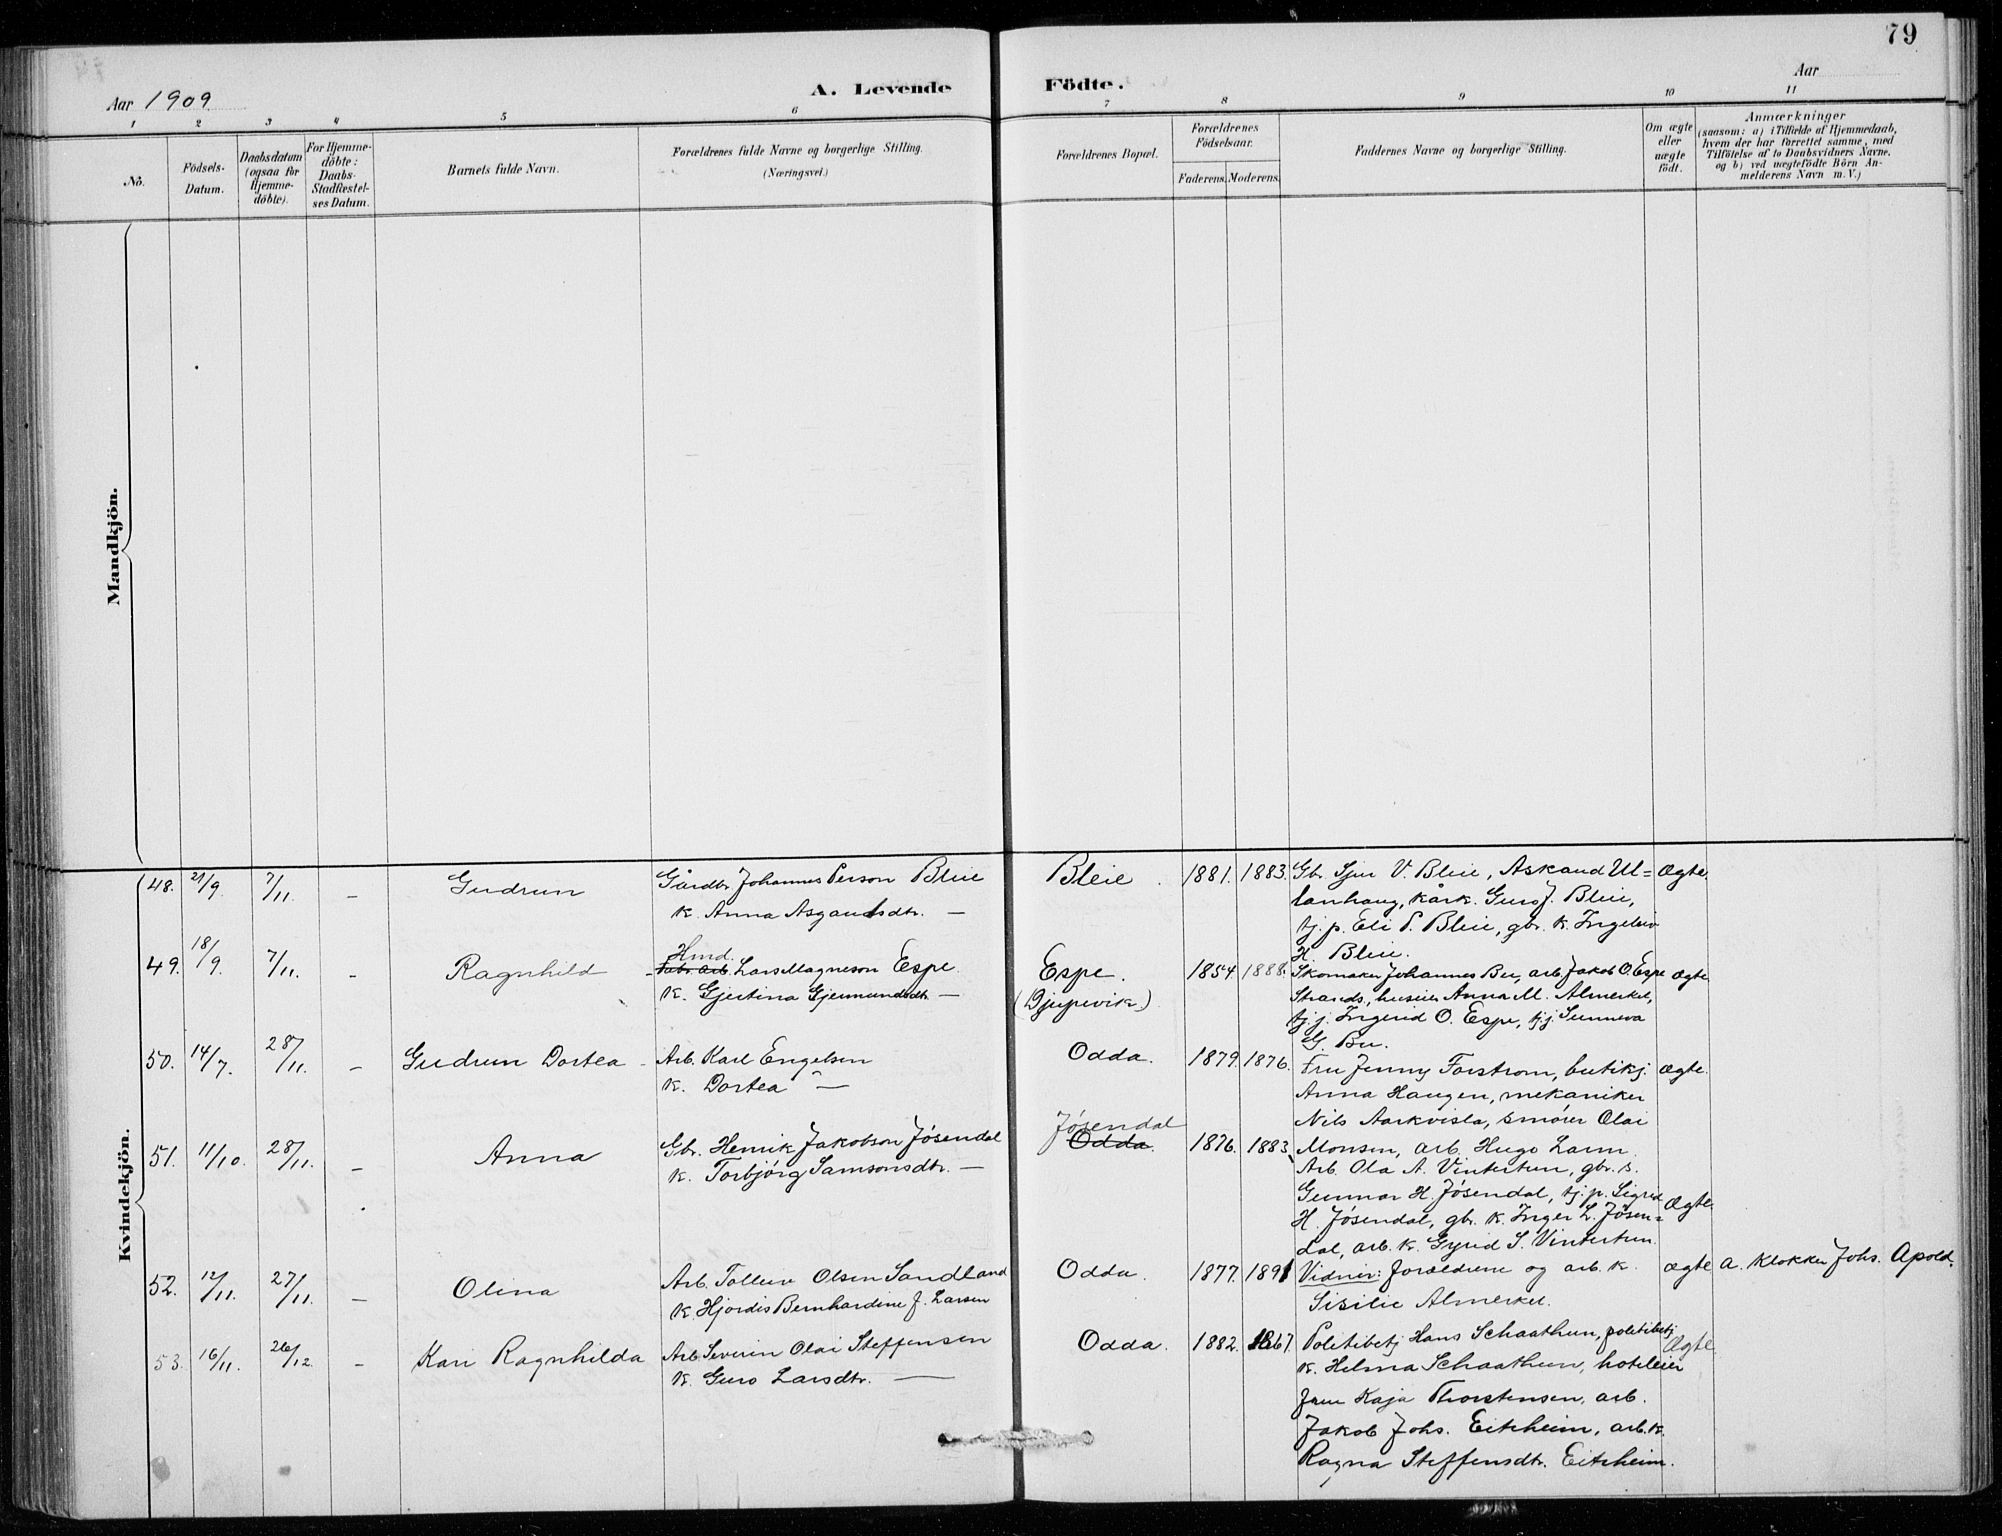 79
Aar 1909.
A. Levende Födte.
Aar
1 2 3 4 5 6 7 8 9 10 11
Nō.
Födsels-Datum.
Daabsdatum (ogsaa for Hjemme-döbte).
For Hjemme-döbte: Daabs-Stadfæstel-ses Datum.
Barnets fulde Navn.
Forældrenes fulde Navne og borgerlige Stilling. (Næringsvei.)
Forældrenes Bopæl.
Forældrenes Födselsaar.
Faderens. Moderens.
Faddernes Navne og borgerlige Stilling.
Om ægte eller uægte födt.
Anmærkninger
(saasom: a) i Tilfælde af Hjemmedaab,
hvem der har forrettet samme, med
Tilföielse af to Daabsvidners Navne.
og b) ved uægtefödte Börn An-
melderens Navn m. V.)
Mandkjön.
Kvindekjön.
48. 21/9. 7/11. — Gudrun Gårdbr. Johannes Person Bleie Bleie. 1881. 1883. Gbr. Sjur V. Bleie, Askaud Ul= Ægte
k. Anna Asgautsdtr. — lanhaug, kårk. Guro J. Bleie,
tj. p. Eli P. Bleie, gbr. k. Ingeleiv
H. Bleie.
49. 18/9. 7/11. — Ragnhild Hmd. Fabr. arb. Lars Magneson Espe Espe. 1854 1888. Skomaker Johannes Bu, arb. Jakob O. Espe ægte
k. Gjertina Gjermundsdtr. — (Djupevik) Strands, huseier Anna M. Almerket,
tj. j. Ingerid O. Espe, tj. j. Sunneva
G. Bu.
50. 14/7. 28/11. — Gudrun Dortea Arb. Karl Engelsen Odda. 1879. 1876. Fru Jenny Forstrom, butikj. ægte.
k. Dortea — Anna Haugen, mekaniker
Nils Aarkvisla, smører Olai
Monsen, arb. Hugo Larm.
51. 11/10. 28/11. — Anna Gbr. Henrik Jakobson Jósendal Jósendal Odda. 1876. 1883. Arb. Ola A. Vintertun, gbr. s.
k. Torbjörg Samsonsdtr. — Gunnar H. Jósendal, tj. p. Sigrid Ægte.
H. Jósendal, gbr. k. Inger L. Jósen=
dal, arb. k. Gyrid S. Vintertun.
52. 12/11. 27/11. — Olina Arb. Tollew Olsen Sandland Odda. 1877. 1891 Vidner: Forældrene og arb. k. ægte a. Klokker Johs. Apold.
k. Hjordis Bernhardine J. Larsen Sisilie Almerket.
53. 16/11. 26/12. — Kari Ragnhilda Arb. Severin Olai Steffensen Odda. 1882. 1867. Politibetj Hans Schaathun, politibetj Ægte
k. Guro Larsdtr. — k. Helma Schaathun, hoteleier
frue Kaja Thorstensen, arb.
Jakob Johs. Eitrheim, arb. k.
Ragna Steffensdtr. Eitrheim.